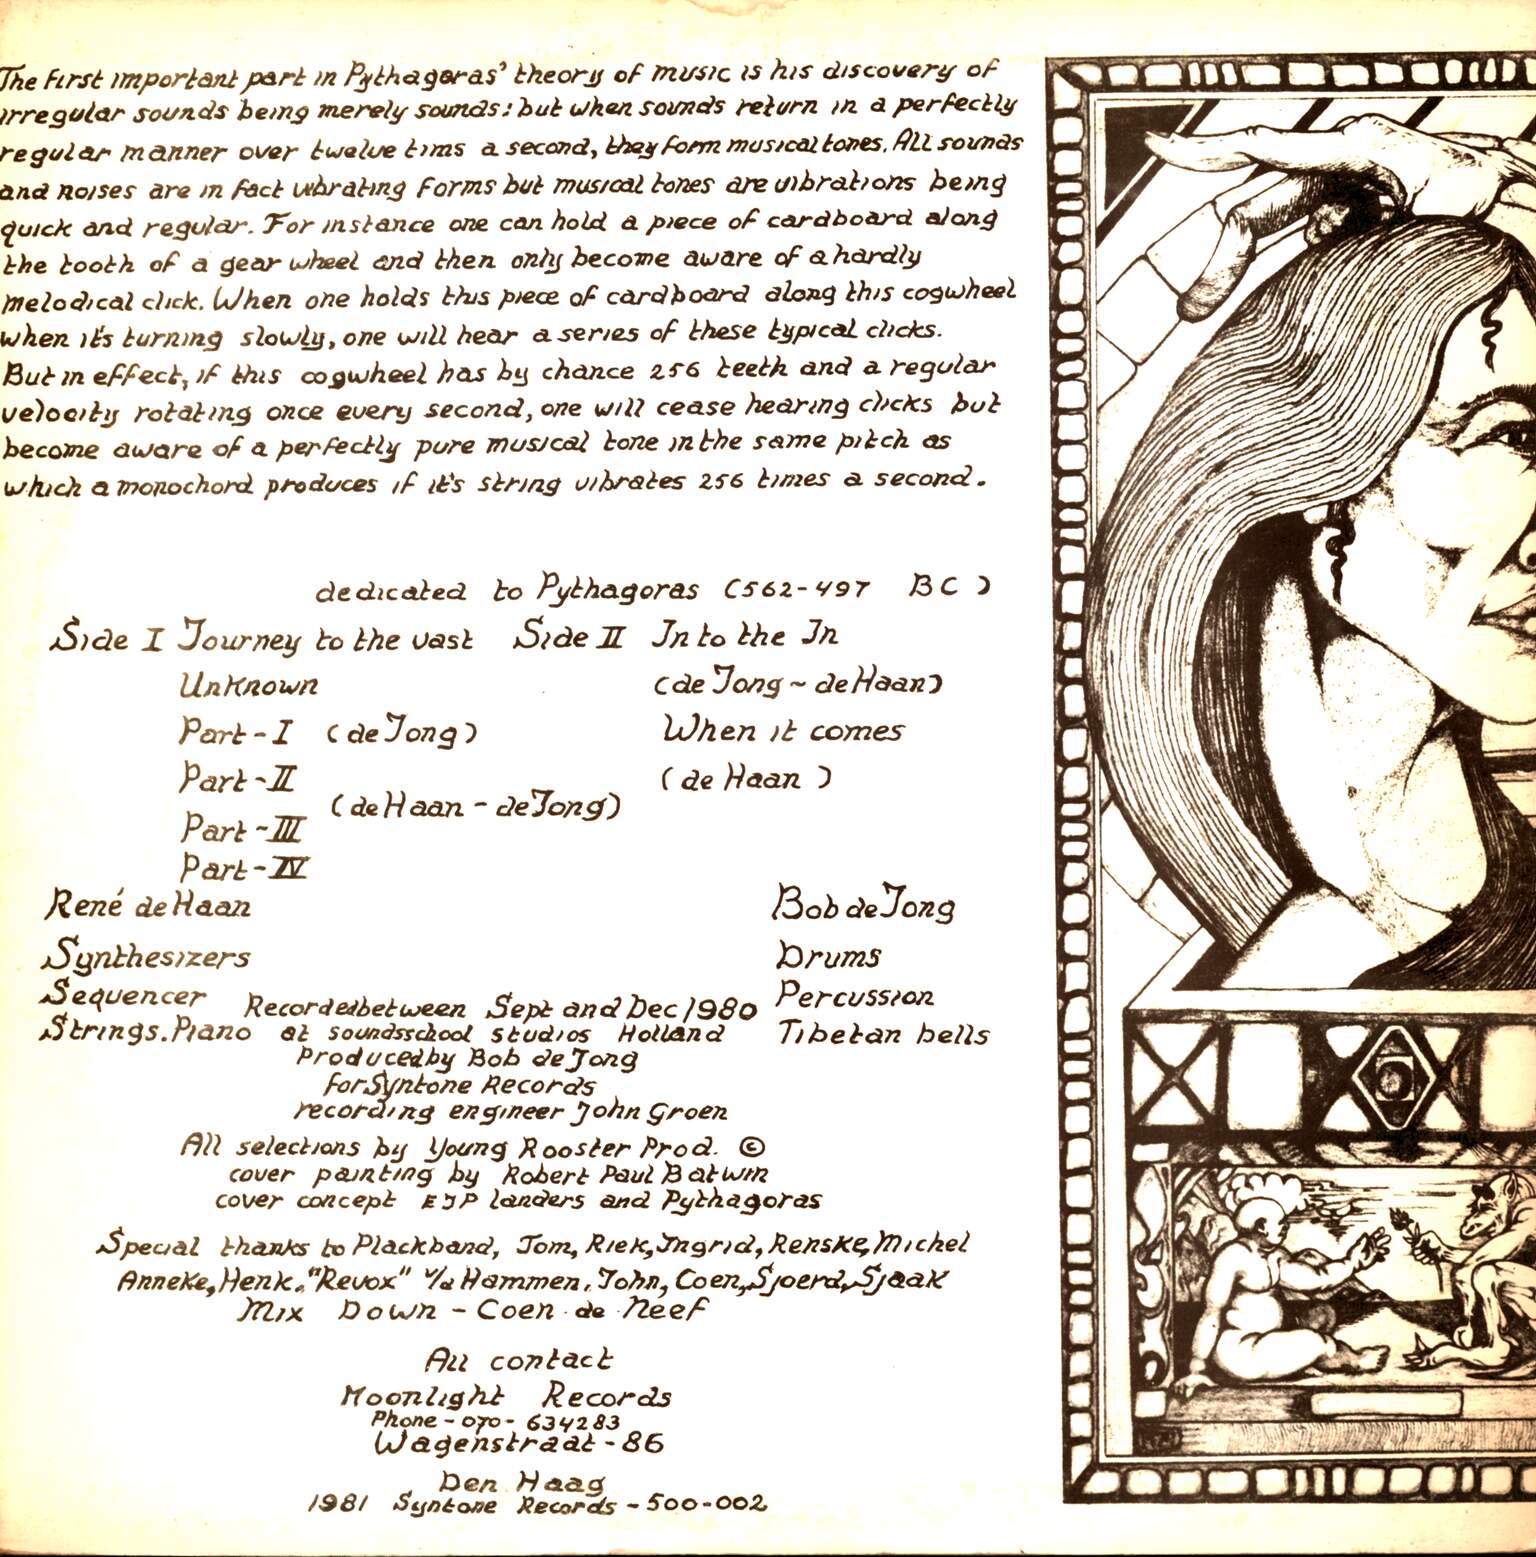 The first important part in Pythagoras' theory of music is his discovery of
irregular sounds being merely sounds: but when sounds return in a perfectly
regular manner over twelve tims a second, they form musical tones. All sounds
and noises are in fact vibrating forms but musical tones are vibrations being
quick and regular. For instance one can hold a piece of cardboard along
the tooth of a gear wheel and then only become aware of a hardly
melodical click. When one holds this piece of cardboard along this cogwheel
when it's turning slowly, one will hear a series of these typical clicks.
But in effect, if this cogwheel has by chance 256 teeth and a regular
velocity rotating once every second, one will cease hearing clicks but
become aware of a perfectly pure musical tone in the same pitch as
which a monochord produces if it's string vibrates 256 times a second.
dedicated to Pythagoras (562-497 BC)
Side I Journey to the vast
Unknown
Part-I (de Jong)
Part-II
(de Haan - de Jong)
Part-III
Part-IV
Side II Into the In
(de Jong ~ de Haan)
When it comes
(de Haan)
René de Haan
Synthesizers
Sequencer
Strings. Piano
Bob de Jong
Drums
Percussion
Tibetan bells
Recorded between Sept and Dec 1980
at soundsschool studios Holland
Produced by Bob de Jong
for Syntone Records
recording engineer John Groen
All selections by Young Rooster Prod. ©
cover painting by Robert Paul Batwin
cover concept EJP landers and Pythagoras
Special thanks to Plackband, Tom, Riek, Ingrid, Renske, Michel
Anneke, Henk. "Revox" v/d Hammen, John, Coen, Sjoerd, Sjaak
Mix Down - Coen de Neef
All contact
Moonlight Records
Phone - 070 - 634283
Wagenstraat - 86
Den Haag
1981 Syntone Records - 500-002